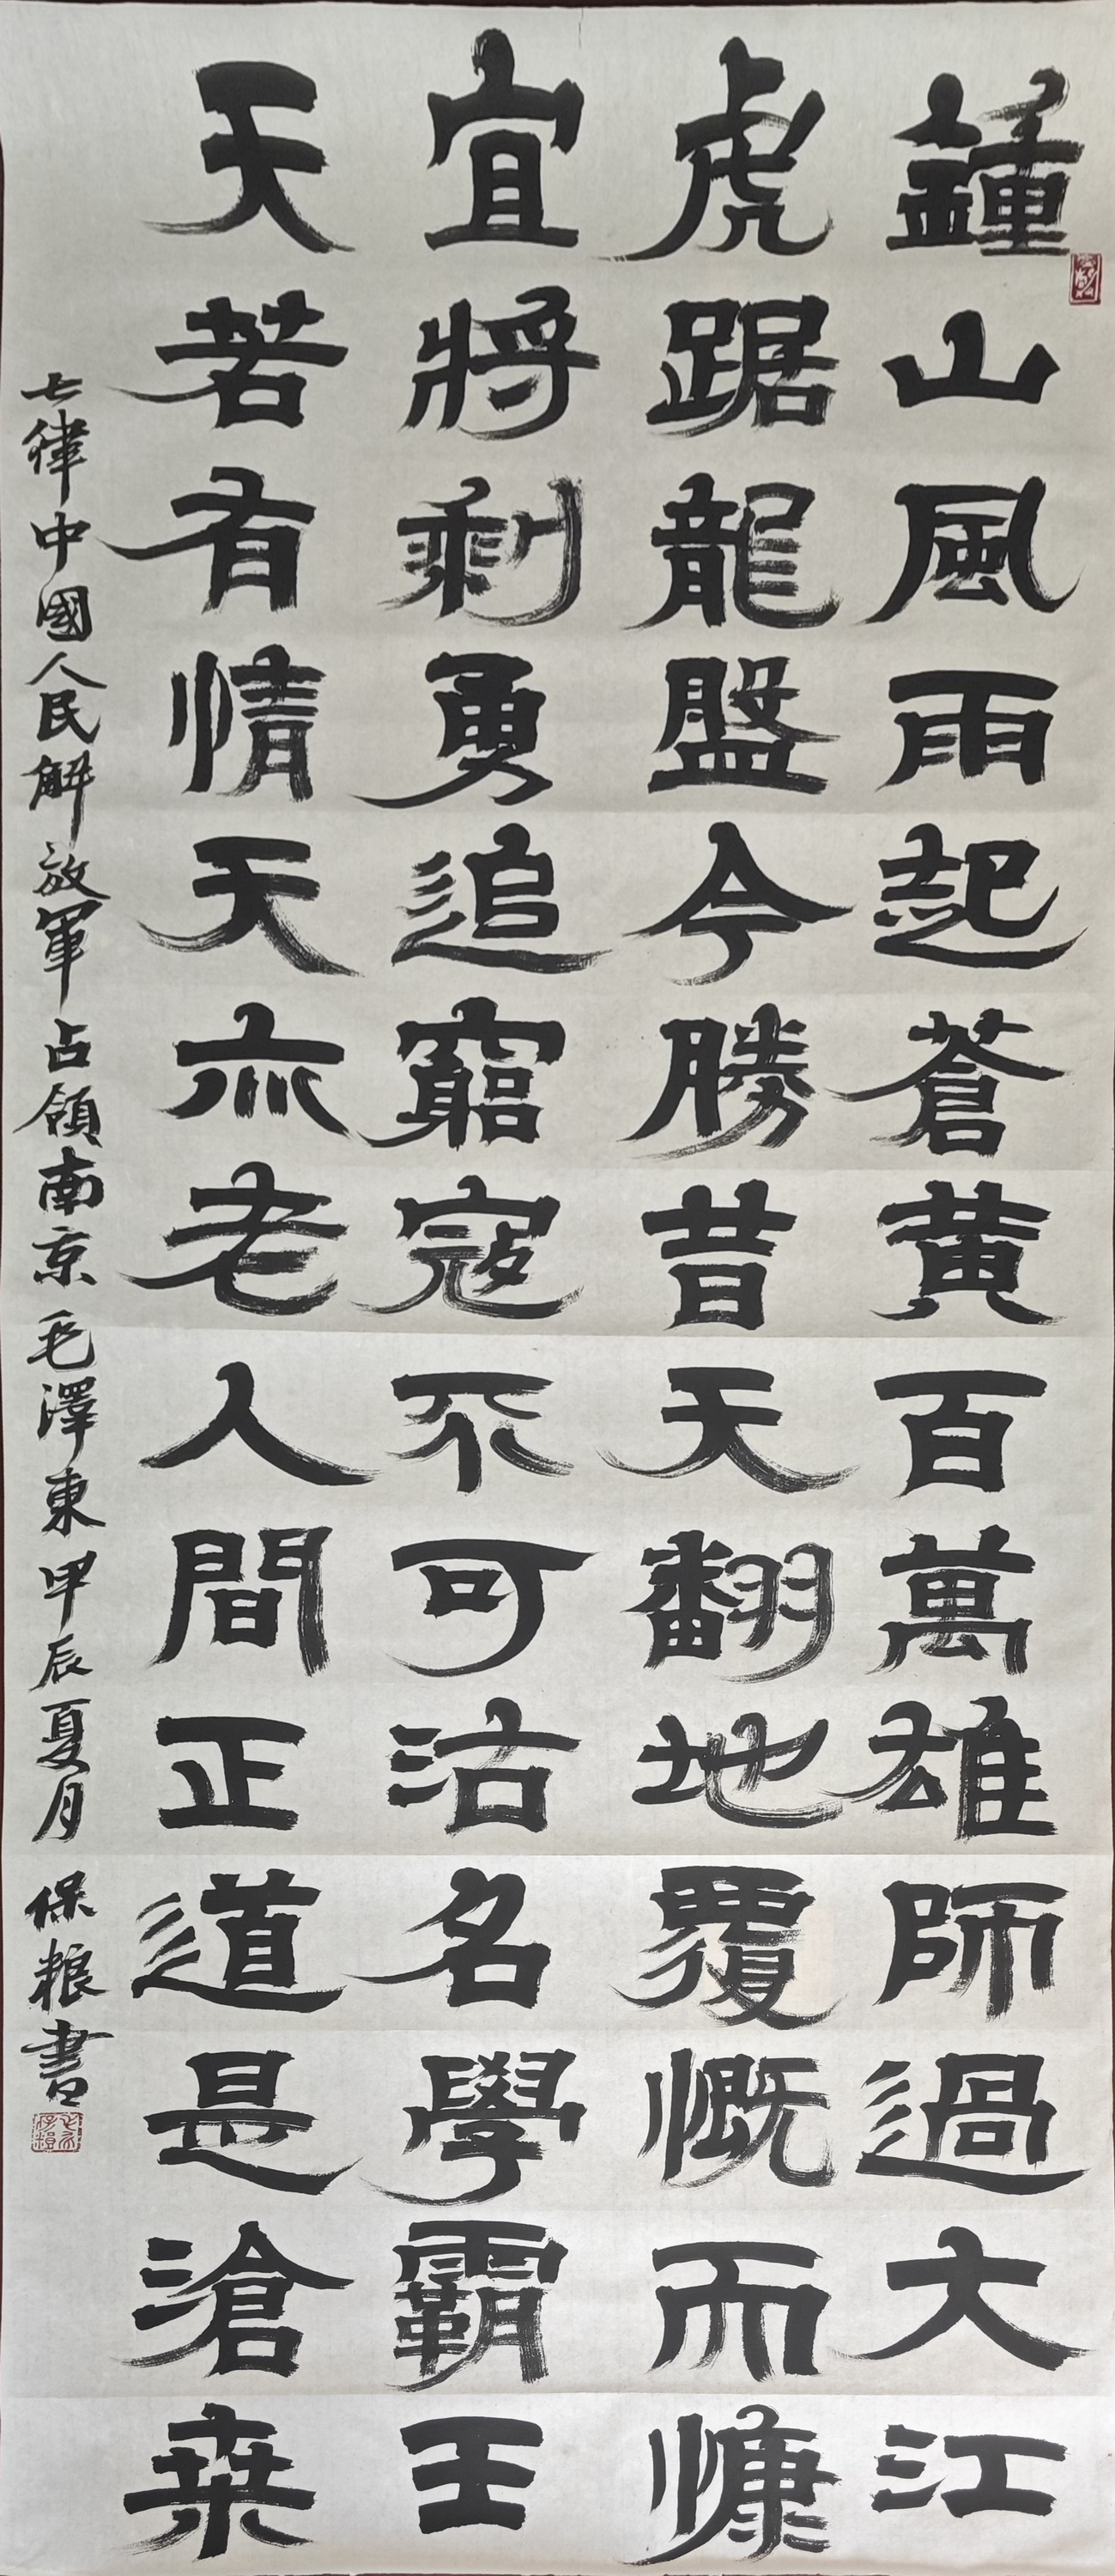 鍾山風雨起蒼黃百萬雄師過大江
虎踞龍盤今勝昔天翻地覆慨而慷
宜將剩勇追窮寇不可沽名學霸王
天若有情天亦老人間正道是滄桑
七律中國人民解放軍占領南京毛澤東甲辰夏月保粮書